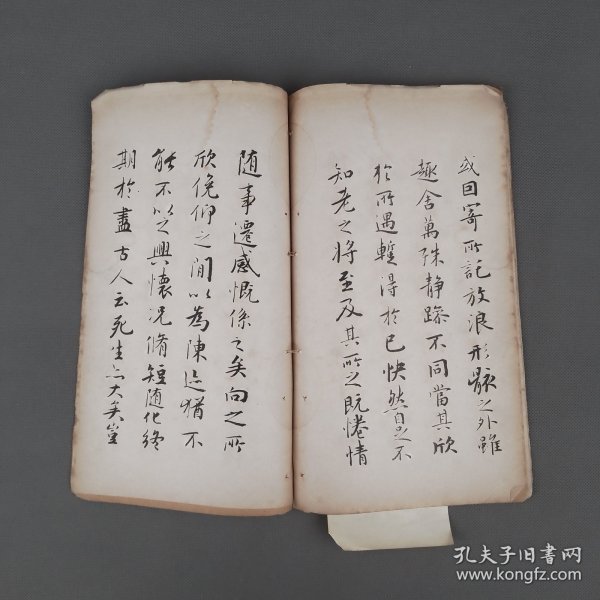 或因寄所託放浪形骸之外雖
趣舍萬殊静躁不同當其欣
於所遇蹔得於己怏然自足不
知老之将至及其所之既惓情
随事遷感慨係之矣向之所
欣俛仰之閒以為陳迹猶不
能不以之興懷况脩短随化終
期於盡古人云死生亦大矣豈
孔夫子旧书网
www.kongfz.com